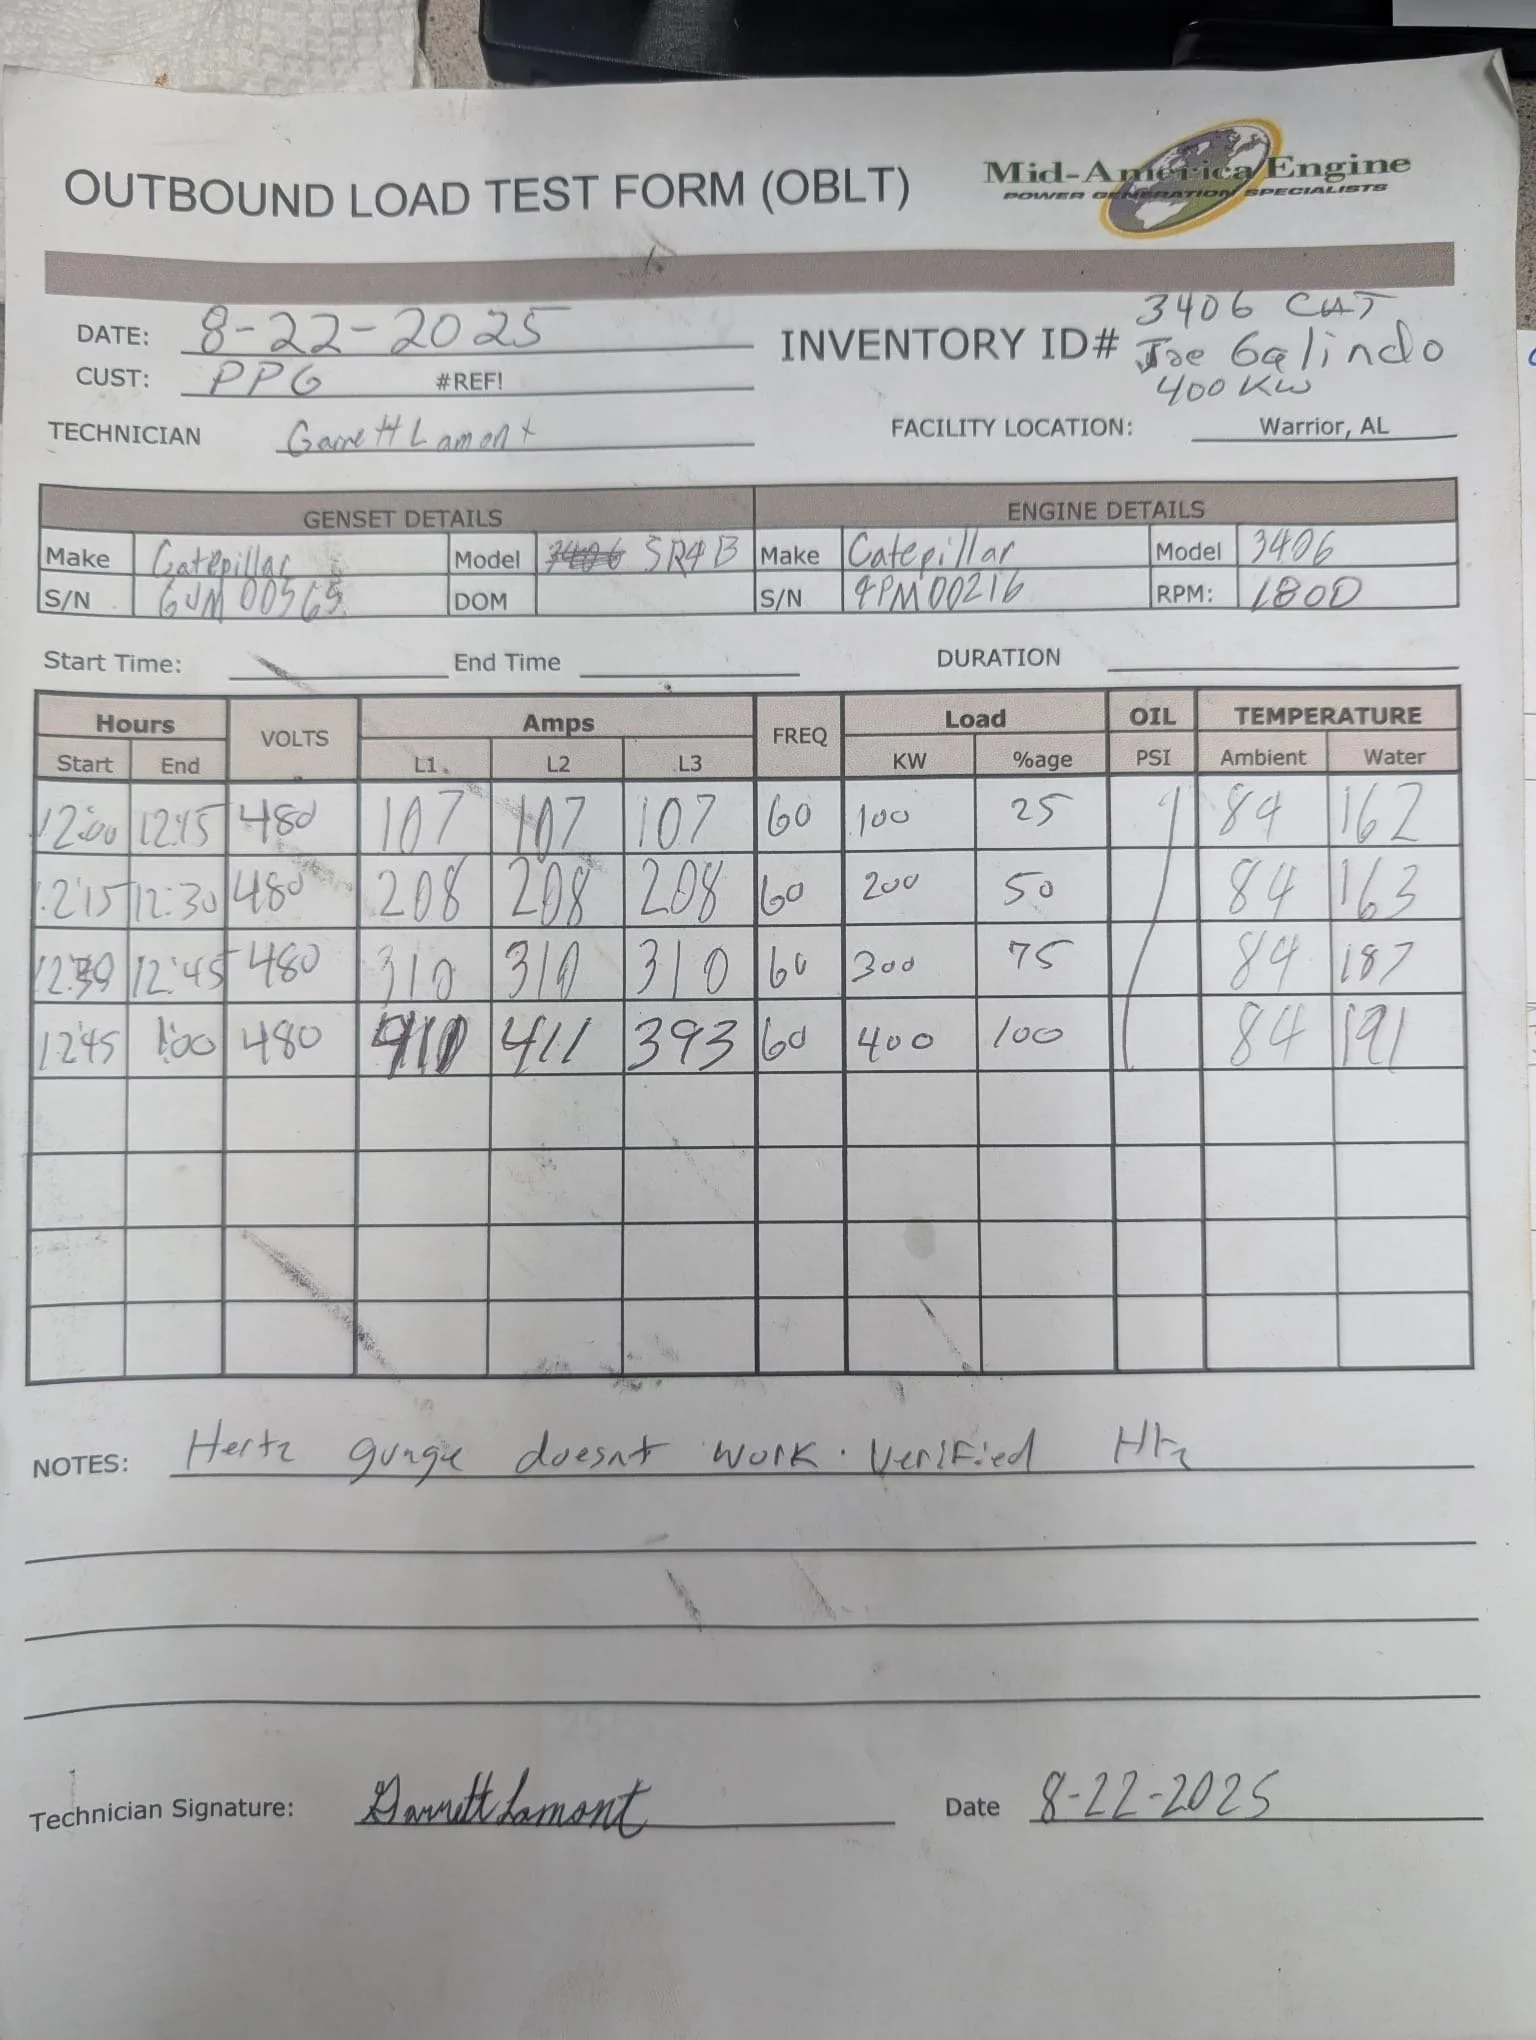 OUTBOUND LOAD TEST FORM (OBLT)
Mid-America Engine
POWER GENERATION SPECIALISTS
DATE: 8-22-2025
INVENTORY ID# 3406 CAT
Joe Galindo
400 KW
CUST: PPG #REF!
TECHNICIAN Garrett Lamont
FACILITY LOCATION: Warrior, AL
GENSET DETAILS ENGINE DETAILS
Make Catepillar Model SR4B Make Catepillar Model 3406
S/N DOM S/N 4PM00216 RPM: 1800
Start Time: End Time DURATION
Hours VOLTS Amps FREQ Load OIL TEMPERATURE
Start End L1 L2 L3 KW %age PSI Ambient Water
12:00 12:15 480 107 107 107 60 100 25 84 162
12:15 12:30 480 208 208 208 60 200 50 84 163
12:30 12:45 480 310 310 310 60 300 75 84 187
12:45 1:00 480 410 411 393 60 400 100 84 191
NOTES: Hertz gunge doesnt work. Verified Htz
Technician Signature: Garrett Lamont Date 8-22-2025